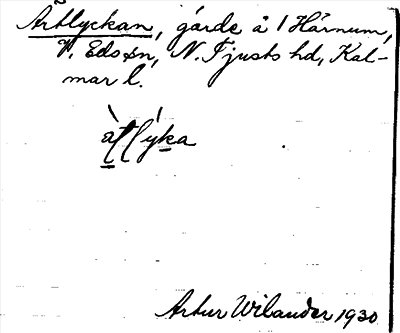 Ärtlyckan, gärde å 1 Härnum,
V. Eds sn, N. Tjusts hd, Kal-
mar l.
Artur Wilander 1930